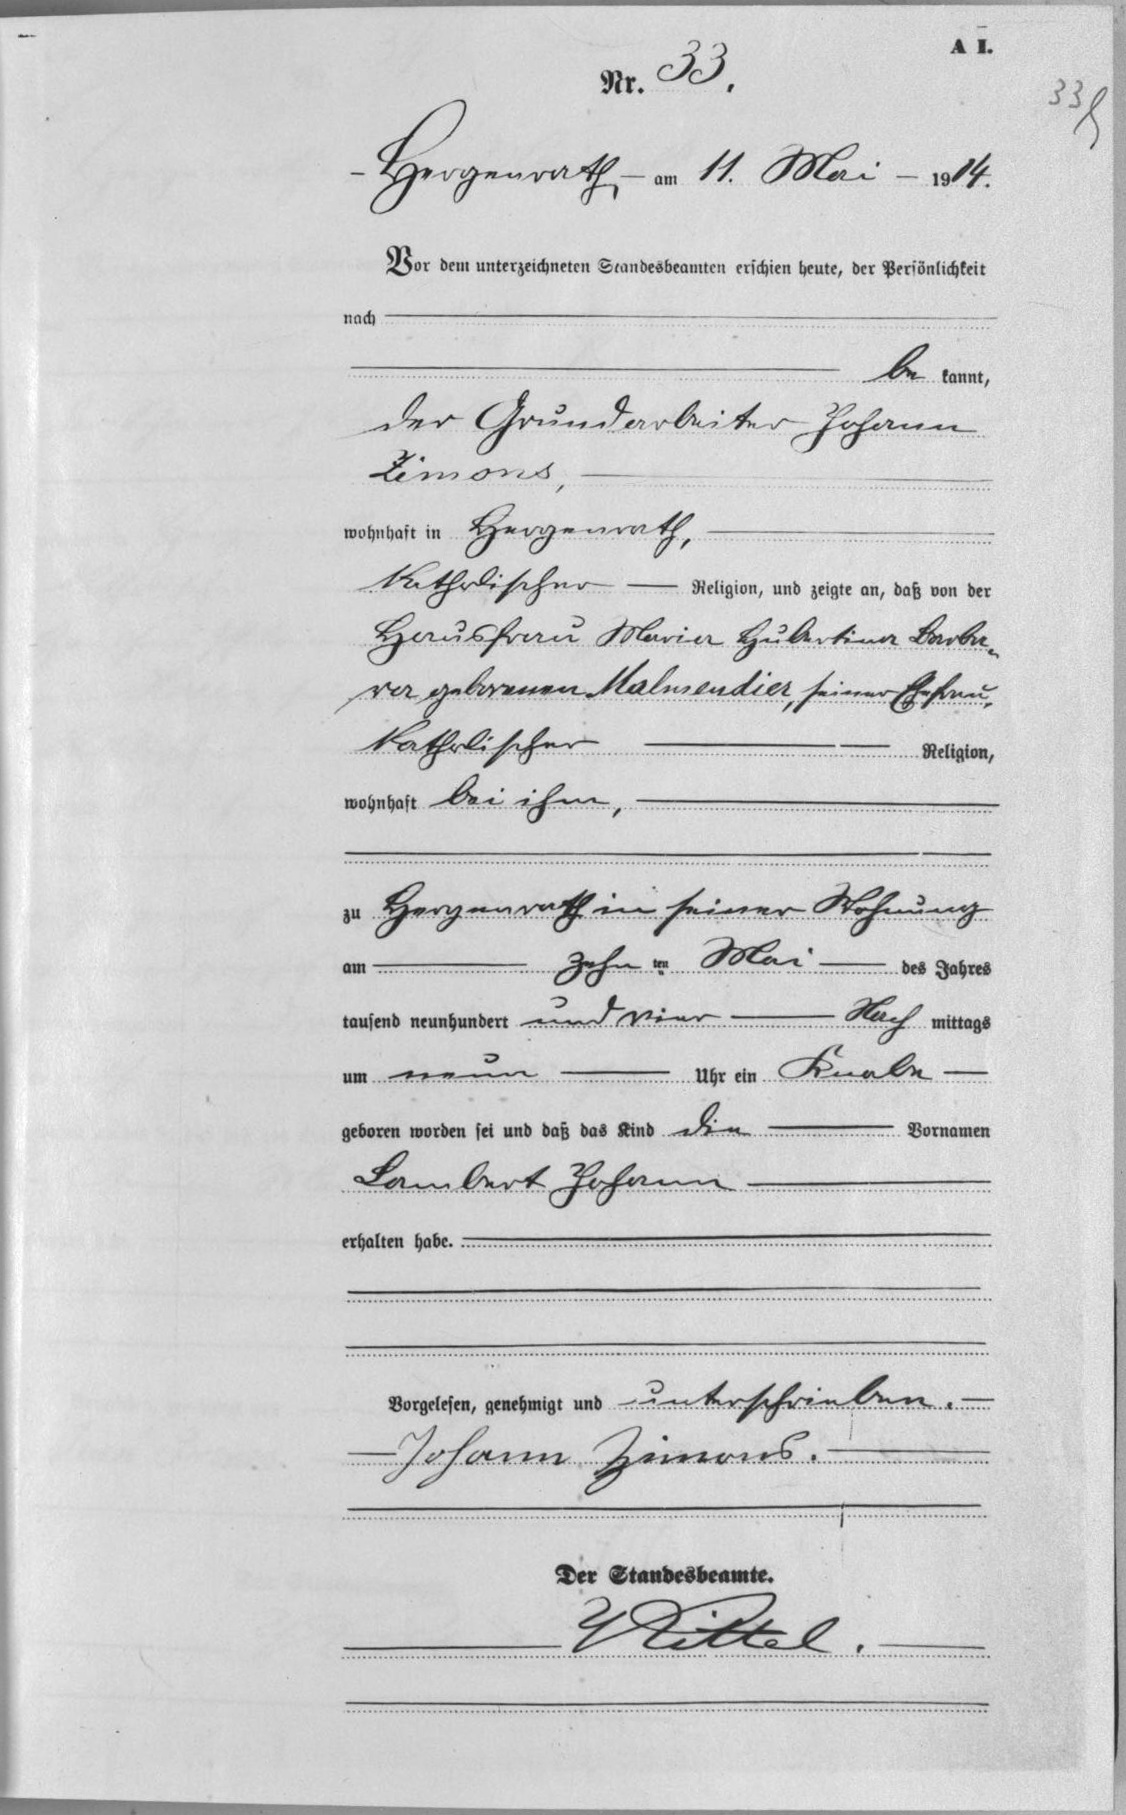 A I.
Nr. 33.
33
- Hergenrath, - am 11. Mai - 1904.
Vor dem unterzeichneten Standesbeamten erschien heute, der Persönlichkeit
nach
be kannt,
der Grundarbeiter Johann
Zimons,
wohnhaft in Hergenrath,
katholischer Religion, und zeigte an, daß von der
Hausfrau Maria Hubertina Barba-
ra geborenen Malmendier, seiner Ehefrau,
katholischer Religion,
wohnhaft bei ihm,
zu Hergenrath in seiner Wohnung
am zehn ten Mai des Jahres
tausend neunhundert und vier Nach mittags
um neun Uhr ein Knabe
geboren worden sei und daß das Kind die Vornamen
Lambert Johann
erhalten habe.
Vorgelesen, genehmigt und unterschrieben.
Johann Zimons.
Der Standesbeamte.
Kittel.